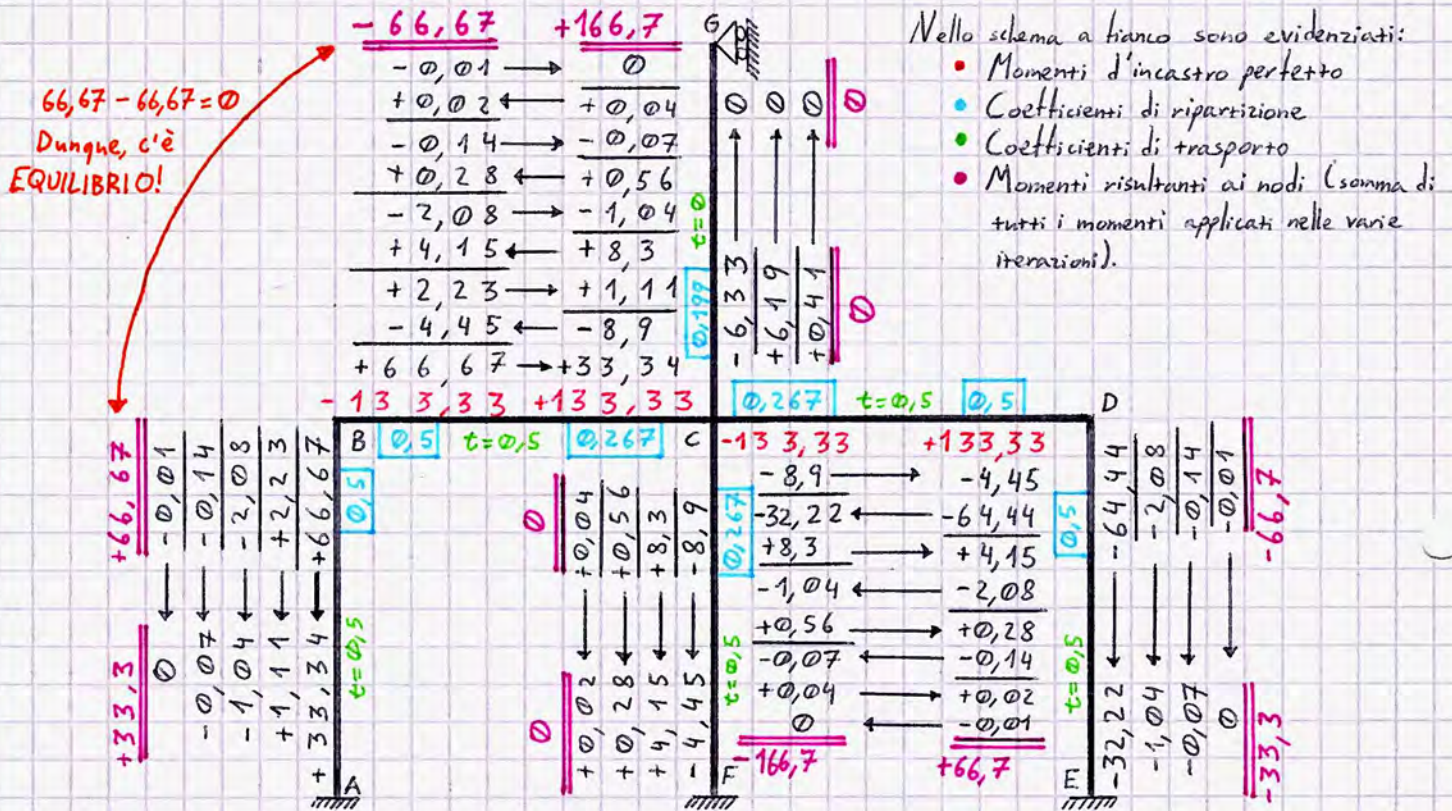 - 66,67 +166,7 G
- 0,01 → 0
+ 0,02 ← + 0,04
- 0,14 → - 0,07
+ 0,28 ← + 0,56
- 2,08 → - 1,04
+ 4,15 ← + 8,3
+ 2,23 → + 1,11
- 4,45 ← - 8,9
+ 66,67 → +33,34
- 133,33 +133,33
66,67 - 66,67 = 0
Dunque, c'è
EQUILIBRIO!
0 0 0 0
t=0
0,199
- 6,33
+ 6,19
+0,41
0
Nello schema a fianco sono evidenziati:
• Momenti d'incastro perfetto
• Coefficienti di ripartizione
• Coefficienti di trasporto
• Momenti risultanti ai nodi (somma di
tutti i momenti applicati nelle varie
iterazioni).
0,267 t=0,5 0,5 D
B 0,5 t=0,5 0,267 C
+66,67
- 0,01
- 0,14
- 2,08
+ 2,23
+66,67
0,5
+33,3
0
- 0,07
- 1,04
+ 1,11
+ 33,34
t=0,5
A
0
+0,04
+0,56
+8,3
-8,9
0,267
0
+0,02
+0,28
+4,15
-4,45
t=0,5
F
-133,33 +133,33
-8,9 → -4,45
-32,22 ← -64,44
+8,3 → +4,15
-1,04 ← -2,08
+0,56 → +0,28
-0,07 ← -0,14
+0,04 → +0,02
0 ← -0,01
-166,7 +66,7
0,5
t=0,5
E
-64,44
-2,08
-0,14
-0,01
-66,7
-32,22
-1,04
-0,07
0
-33,3